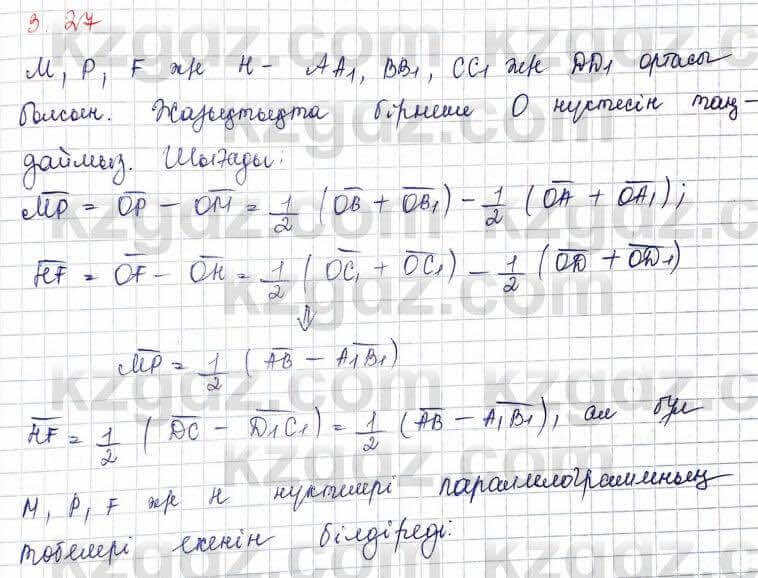 3. 27
M, P, F жн H - AA₁, BB₁, CC₁ жн DD₁ ортасы
болсын. Жазықтықта бірнеше O нүктесін таң-
даймыз. Шығады:
M̅P̅ = O̅P̅ - O̅M̅ = 1/2 (O̅B̅ + O̅B̅₁) - 1/2 (O̅A̅ + O̅A̅₁);
H̅F̅ = O̅F̅ - O̅H̅ = 1/2 (O̅C̅₁ + O̅C̅₁) - 1/2 (O̅D̅ + O̅D̅₁)
⇓
M̅P̅ = 1/2 (A̅B̅ - A̅₁B̅₁)
H̅F̅ = 1/2 (D̅C̅ - D̅₁C̅₁) = 1/2 (A̅B̅ - A̅₁B̅₁), ал бұл
M, P, F жн H нүктелері параллелограммның
төбелері екенін білдіреді.
kzgdz.com